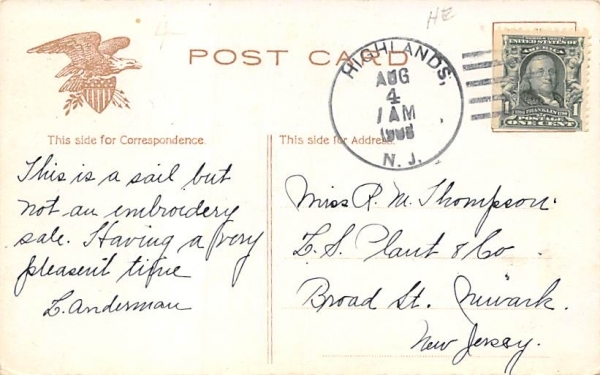 HE
POST CARD
HIGHLANDS,
AUG
4
1 AM
N. J.
UNITED STATES OF AMERICA
FRANKLIN
POSTAGE
ONE CENT
This side for Correspondence.
This side for Address.
This is a sail but
not an embroidery
sale. Having a very
pleasen't time
L. Anderman
Miss R. M. Thompson.
L. S. Plaut & Co.
Broad St. Newark.
New Jersey.